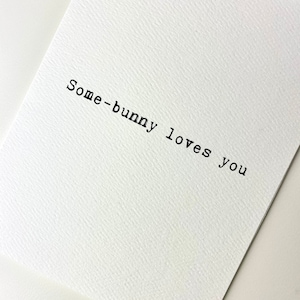 Some-bunny loves you